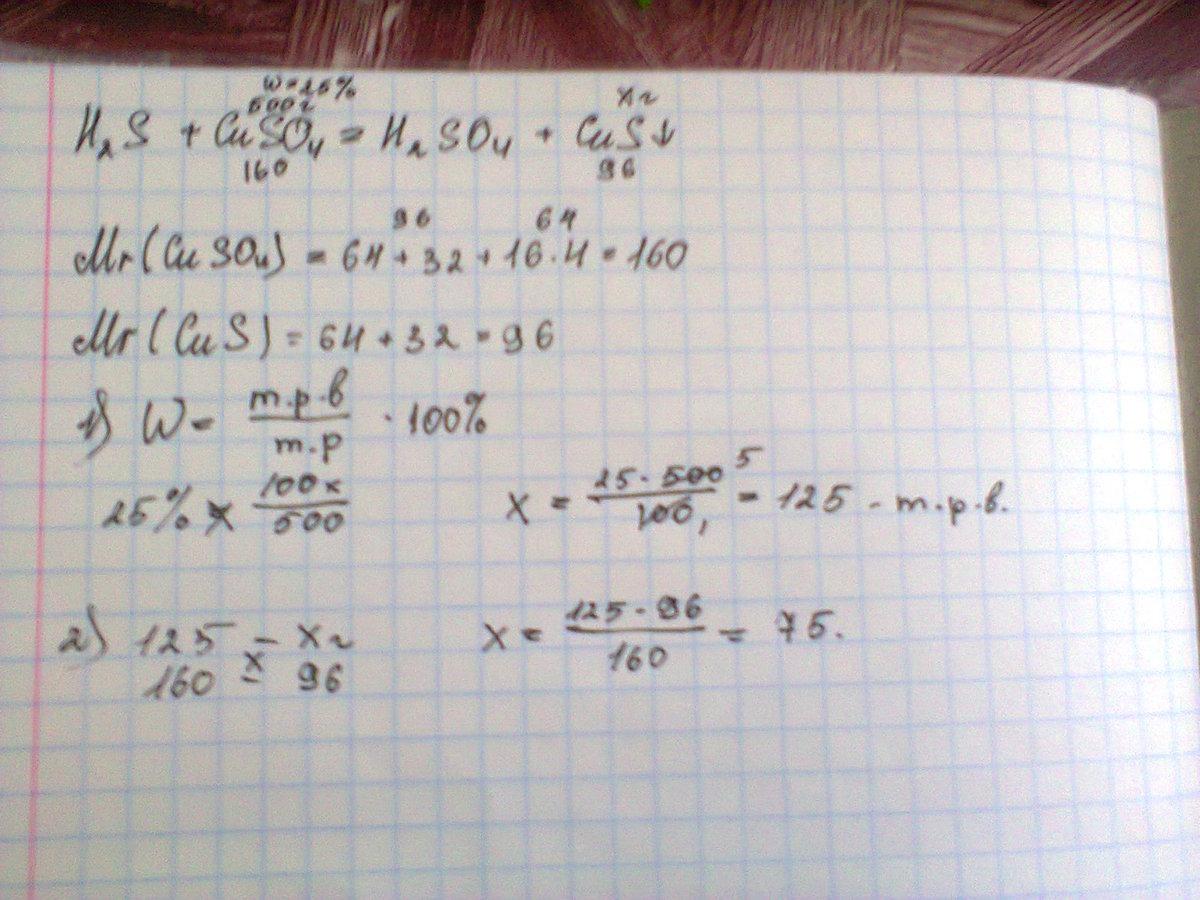 w=25%
500г xг
H₂S + CuSO₄ = H₂SO₄ + CuS↓
160 96
96 64
Mr(CuSO₄) = 64 + 32 + 16·4 = 160
Mr(CuS) = 64 + 32 = 96
1) W = m.р.в / m.р · 100%
25% × 100x / 500 x = 25·500 / 100 = 125 - m.р.в.
5 1
2) 125 – xг x = 125·96 / 160 = 75.
x
160 – 96